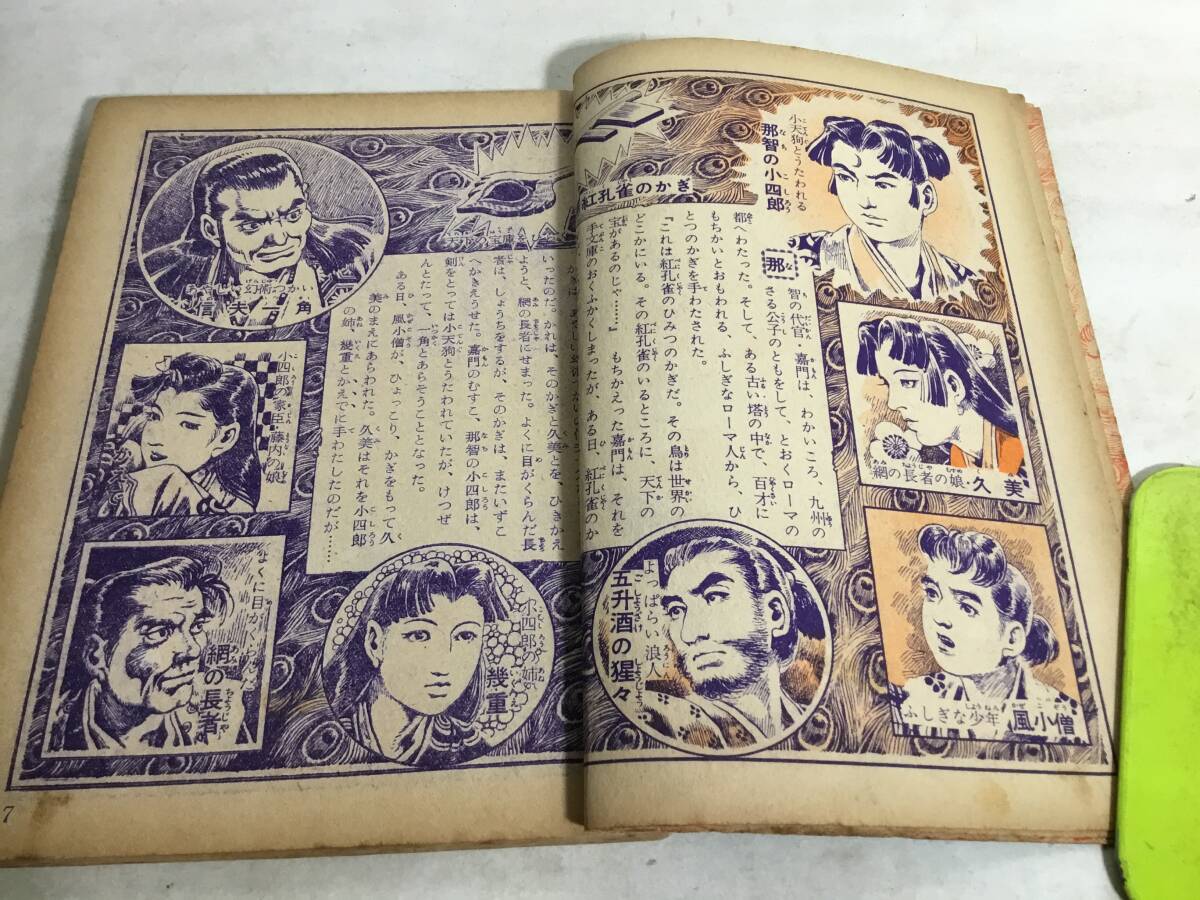 小天狗とうたわれる
那智の小四郎
紅孔雀のかぎ
那
智の代官、嘉門は、わかいころ、九州の
さる公子のともをして、とおくローマの
都へわたった。そして、ある古い塔の中で、百才に
もちかいとおもわれる、ふしぎなローマ人から、ひ
とつのかぎを手わたされた。
「これは紅孔雀のひみつのかぎだ。その鳥は世界の
どこかにいる。その紅孔雀のいるところに、天下の
宝があるのじゃ……」　もちかえった嘉門は、それを
手文庫のおくふかくしまったが、ある日、紅孔雀のか
網の長者の娘・久美
ふしぎな少年 風小僧
よっぱらい浪人
五升酒の猩々
いったのだ。かれは、そのかぎと久美とを、ひきかえ
ようと、網の長者にせまった。よくに目がくらんだ長
者は、しょうちをするが、そのかぎは、またいずこ
へかきえうせた。嘉門のむすこ、那智の小四郎は、
剣をとっては小天狗とうたわれていたが、けつぜ
んとたって、一角とあらそうこととなった。
ある日、風小僧が、ひょっこり、かぎをもって久
美のまえにあらわれた。久美はそれを小四郎
の姉、幾重とかえでに手わたしたのだが……
あやしい幻術つかい
信夫一角
小四郎の家臣・藤内の娘
よくに目がくらんだ
網の長者
小四郎の姉
幾重
7